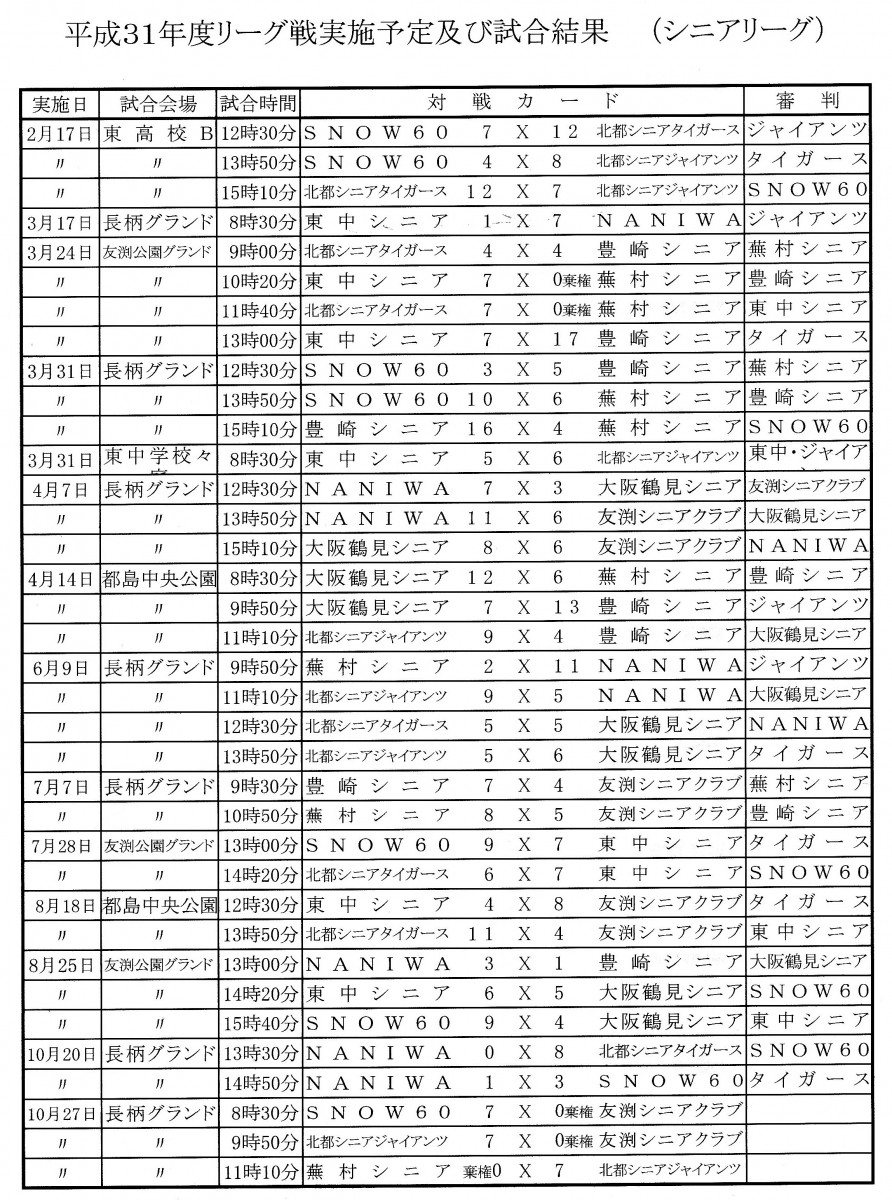 平成31年度リーグ戦実施予定及び試合結果 （シニアリーグ）
実施日 試合会場 試合時間 対戦カード 審判
2月17日 東高校B 12時30分 SNOW60 7 X 12 北都シニアタイガース ジャイアンツ
〃 〃 13時50分 SNOW60 4 X 8 北都シニアジャイアンツ タイガース
〃 〃 15時10分 北都シニアタイガース 12 X 7 北都シニアジャイアンツ SNOW60
3月17日 長柄グランド 8時30分 東中シニア 1 X 7 NANIWA ジャイアンツ
3月24日 友渕公園グランド 9時00分 北都シニアタイガース 4 X 4 豊崎シニア 蕪村シニア
〃 〃 10時20分 東中シニア 7 X 0棄権 蕪村シニア 豊崎シニア
〃 〃 11時40分 北都シニアタイガース 7 X 0棄権 蕪村シニア 東中シニア
〃 〃 13時00分 東中シニア 7 X 17 豊崎シニア タイガース
3月31日 長柄グランド 12時30分 SNOW60 3 X 5 豊崎シニア 蕪村シニア
〃 〃 13時50分 SNOW60 10 X 6 蕪村シニア 豊崎シニア
〃 〃 15時10分 豊崎シニア 16 X 4 蕪村シニア SNOW60
3月31日 東中学校々 8時30分 東中シニア 5 X 6 北都シニアジャイアンツ 東中・ジャイア
4月7日 長柄グランド 12時30分 NANIWA 7 X 3 大阪鶴見シニア 友渕シニアクラブ
〃 〃 13時50分 NANIWA 11 X 6 友渕シニアクラブ 大阪鶴見シニア
〃 〃 15時10分 大阪鶴見シニア 8 X 6 友渕シニアクラブ NANIWA
4月14日 都島中央公園 8時30分 大阪鶴見シニア 12 X 6 蕪村シニア 豊崎シニア
〃 〃 9時50分 大阪鶴見シニア 7 X 13 豊崎シニア ジャイアンツ
〃 〃 11時10分 北都シニアジャイアンツ 9 X 4 豊崎シニア 大阪鶴見シニア
6月9日 長柄グランド 9時50分 蕪村シニア 2 X 11 NANIWA ジャイアンツ
〃 〃 11時10分 北都シニアジャイアンツ 9 X 5 NANIWA 大阪鶴見シニア
〃 〃 12時30分 北都シニアタイガース 5 X 5 大阪鶴見シニア NANIWA
〃 〃 13時50分 北都シニアジャイアンツ 5 X 6 大阪鶴見シニア タイガース
7月7日 長柄グランド 9時30分 豊崎シニア 7 X 4 友渕シニアクラブ 蕪村シニア
〃 〃 10時50分 蕪村シニア 8 X 5 友渕シニアクラブ 豊崎シニア
7月28日 友渕公園グランド 13時00分 SNOW60 9 X 7 東中シニア タイガース
〃 〃 14時20分 北都シニアタイガース 6 X 7 東中シニア SNOW60
8月18日 都島中央公園 12時30分 東中シニア 4 X 8 友渕シニアクラブ タイガース
〃 〃 13時50分 北都シニアタイガース 11 X 4 友渕シニアクラブ 東中シニア
8月25日 友渕公園グランド 13時00分 NANIWA 3 X 1 豊崎シニア 大阪鶴見シニア
〃 〃 14時20分 東中シニア 6 X 5 大阪鶴見シニア SNOW60
〃 〃 15時40分 SNOW60 9 X 4 大阪鶴見シニア 東中シニア
10月20日 長柄グランド 13時30分 NANIWA 0 X 8 北都シニアタイガース SNOW60
〃 〃 14時50分 NANIWA 1 X 3 SNOW60 タイガース
10月27日 長柄グランド 8時30分 SNOW60 7 X 0棄権 友渕シニアクラブ
〃 〃 9時50分 北都シニアジャイアンツ 7 X 0棄権 友渕シニアクラブ
〃 〃 11時10分 蕪村シニア 棄権0 X 7 北都シニアジャイアンツ